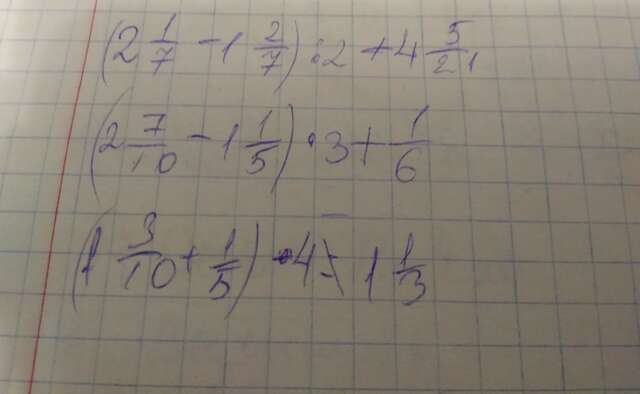 (2 1/7 - 1 2/7) : 2 + 4 5/21
(2 7/10 - 1 1/5) · 3 + 1/6
(1 3/10 + 1/5) · 4 - 1 1/3